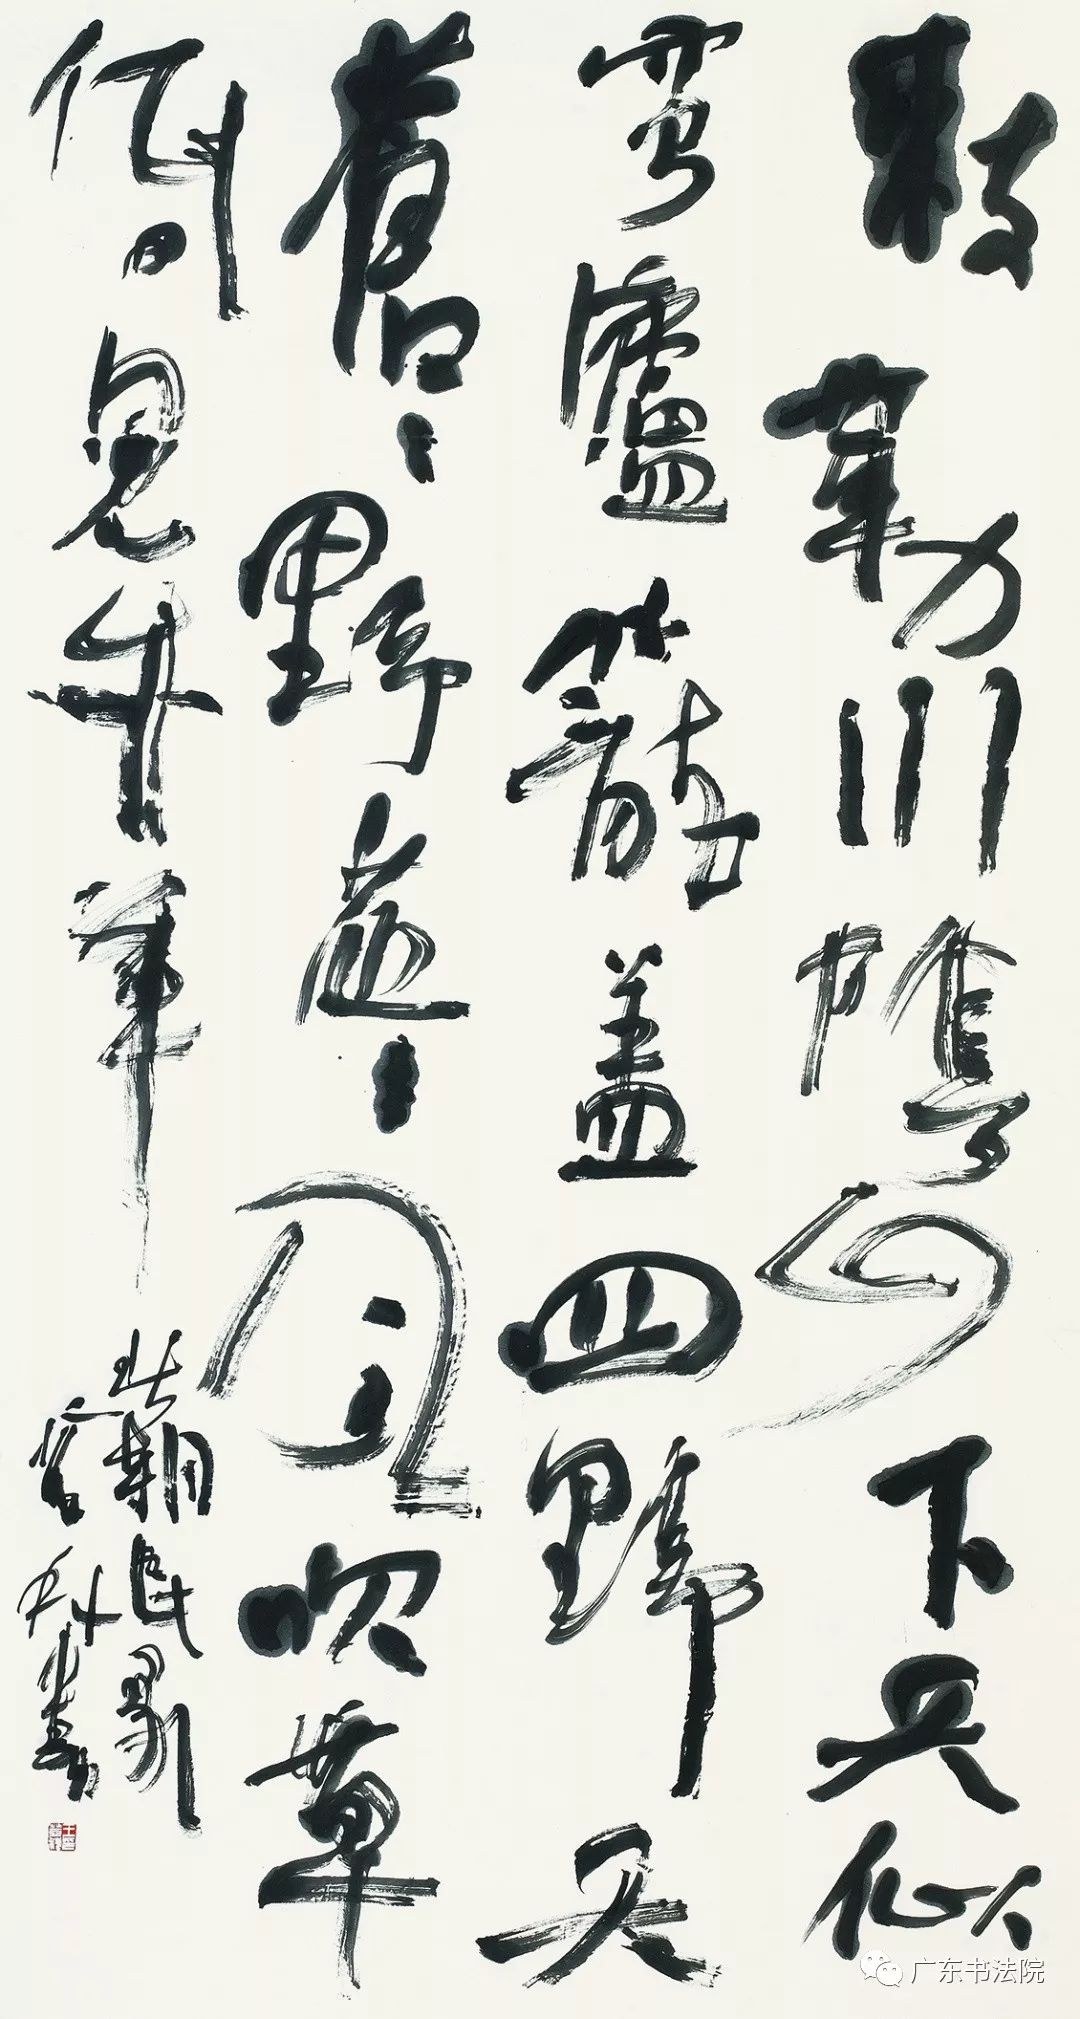 敕勒川陰山下天似
穹廬籠蓋四野天
蒼〻野茫〻風吹草
低見牛羊
北朝民歌
广东书法院